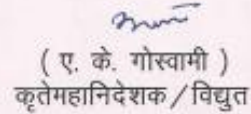 ( ए. के. गोस्वामी )
कृतेमहानिदेशक/विद्युत